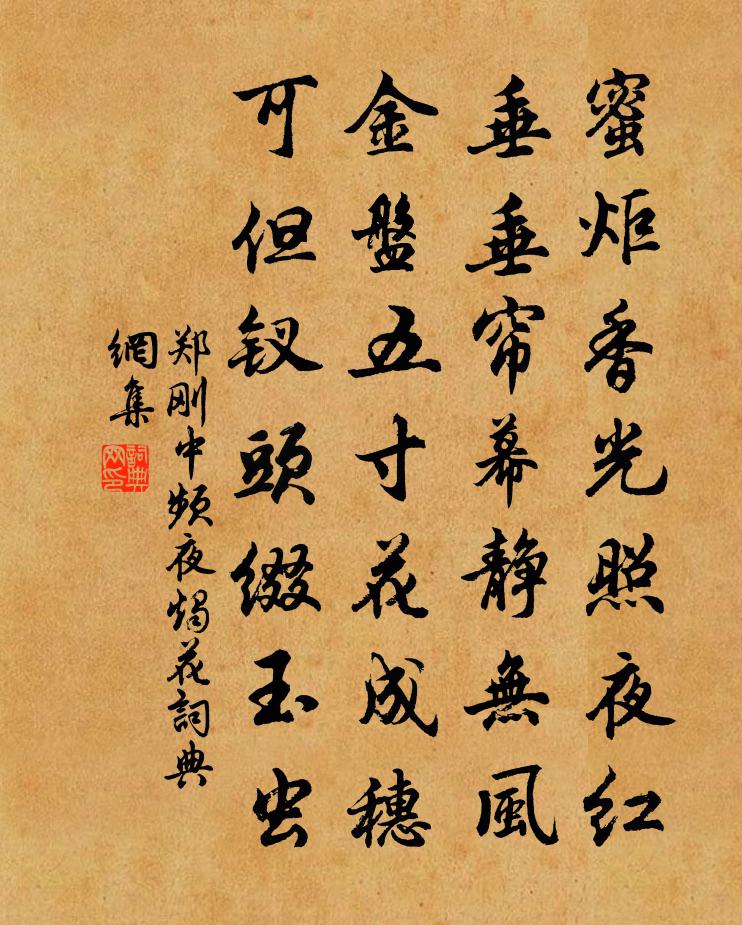 蜜炬香光照夜红
垂垂帘幕静無風
金盤五寸花成穗
可但钗頭缀玉虫
郑刚中频夜烛花詞典
網集
詞典
网印